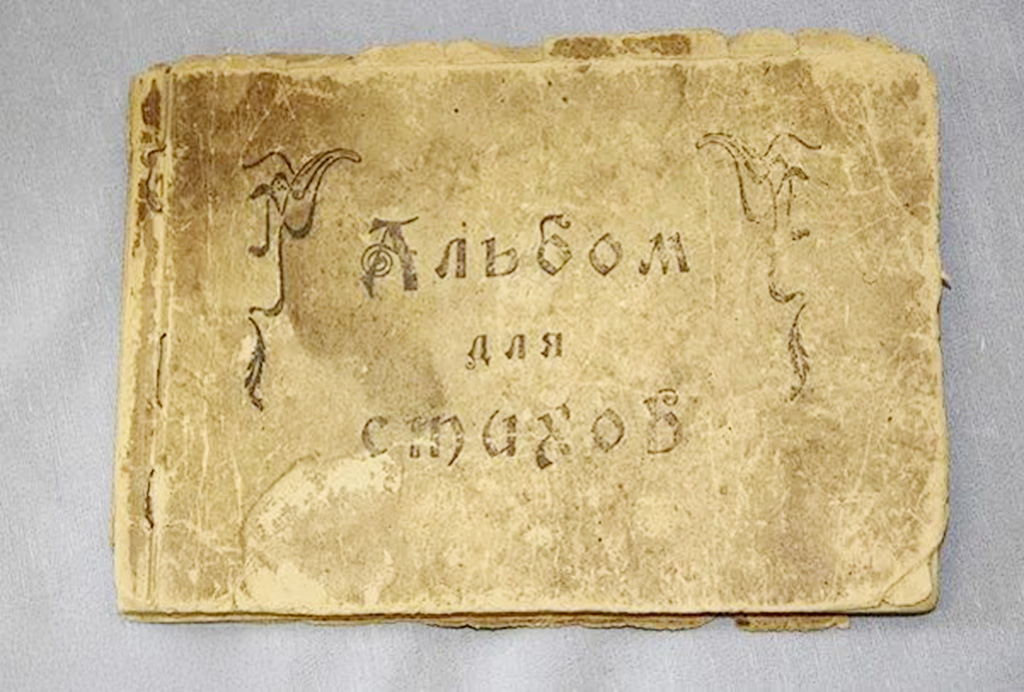 Альбом
для
стихов